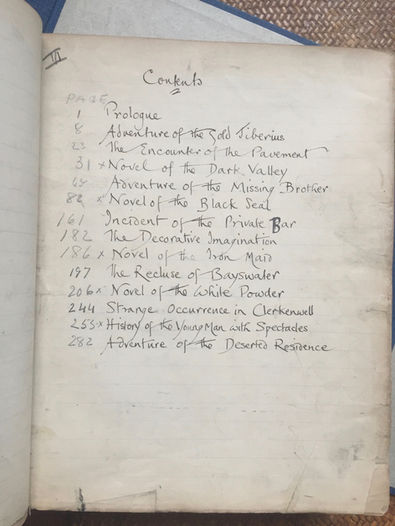 III
Contents
PAGE
1 Prologue
8 Adventure of the Gold Tiberius
23 The Encounter of the Pavement
31 x Novel of the Dark Valley
Adventure of the Missing Brother
82 x Novel of the Black Seal
161 Incident of the Private Bar
182 The Decorative Imagination
186 x Novel of the Iron Maid
197 The Recluse of Bayswater
206 x Novel of the White Powder
244 Strange Occurrence in Clerkenwell
255 x History of the Young Man with Spectacles
282 Adventure of the Deserted Residence